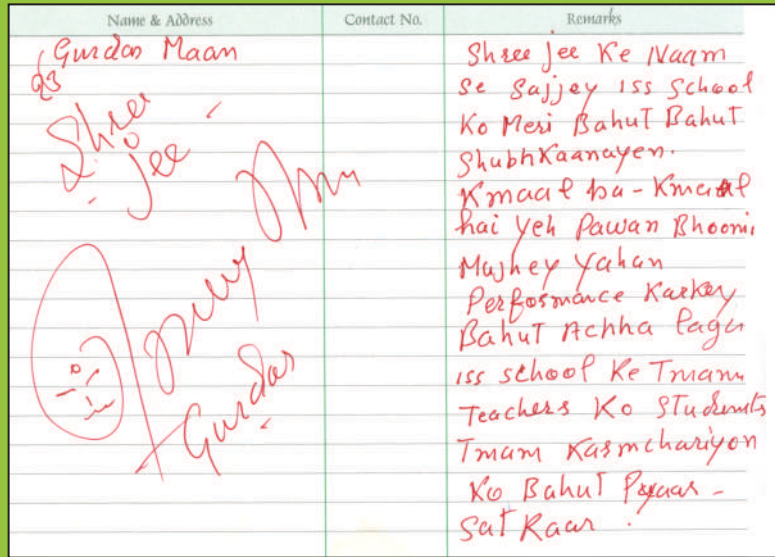 Name & Address
Contact No.
Remarks
Gurdas Maan
Shree
Jee
Gurdas
Shree jee Ke Naam
Se Sajjey iss School
Ko Meri Bahut Bahut
Shubhkaanayen.
Kmaal ba-Kmaal
hai Yeh Pawan Bhoomi
Mujhey Yahan
Performance Karkey
Bahut Achha Laga
iss school Ke Tmam
Teachers Ko STudents
Tmam Karmchariyon
Ko Bahut Pyaar -
SatKaar.